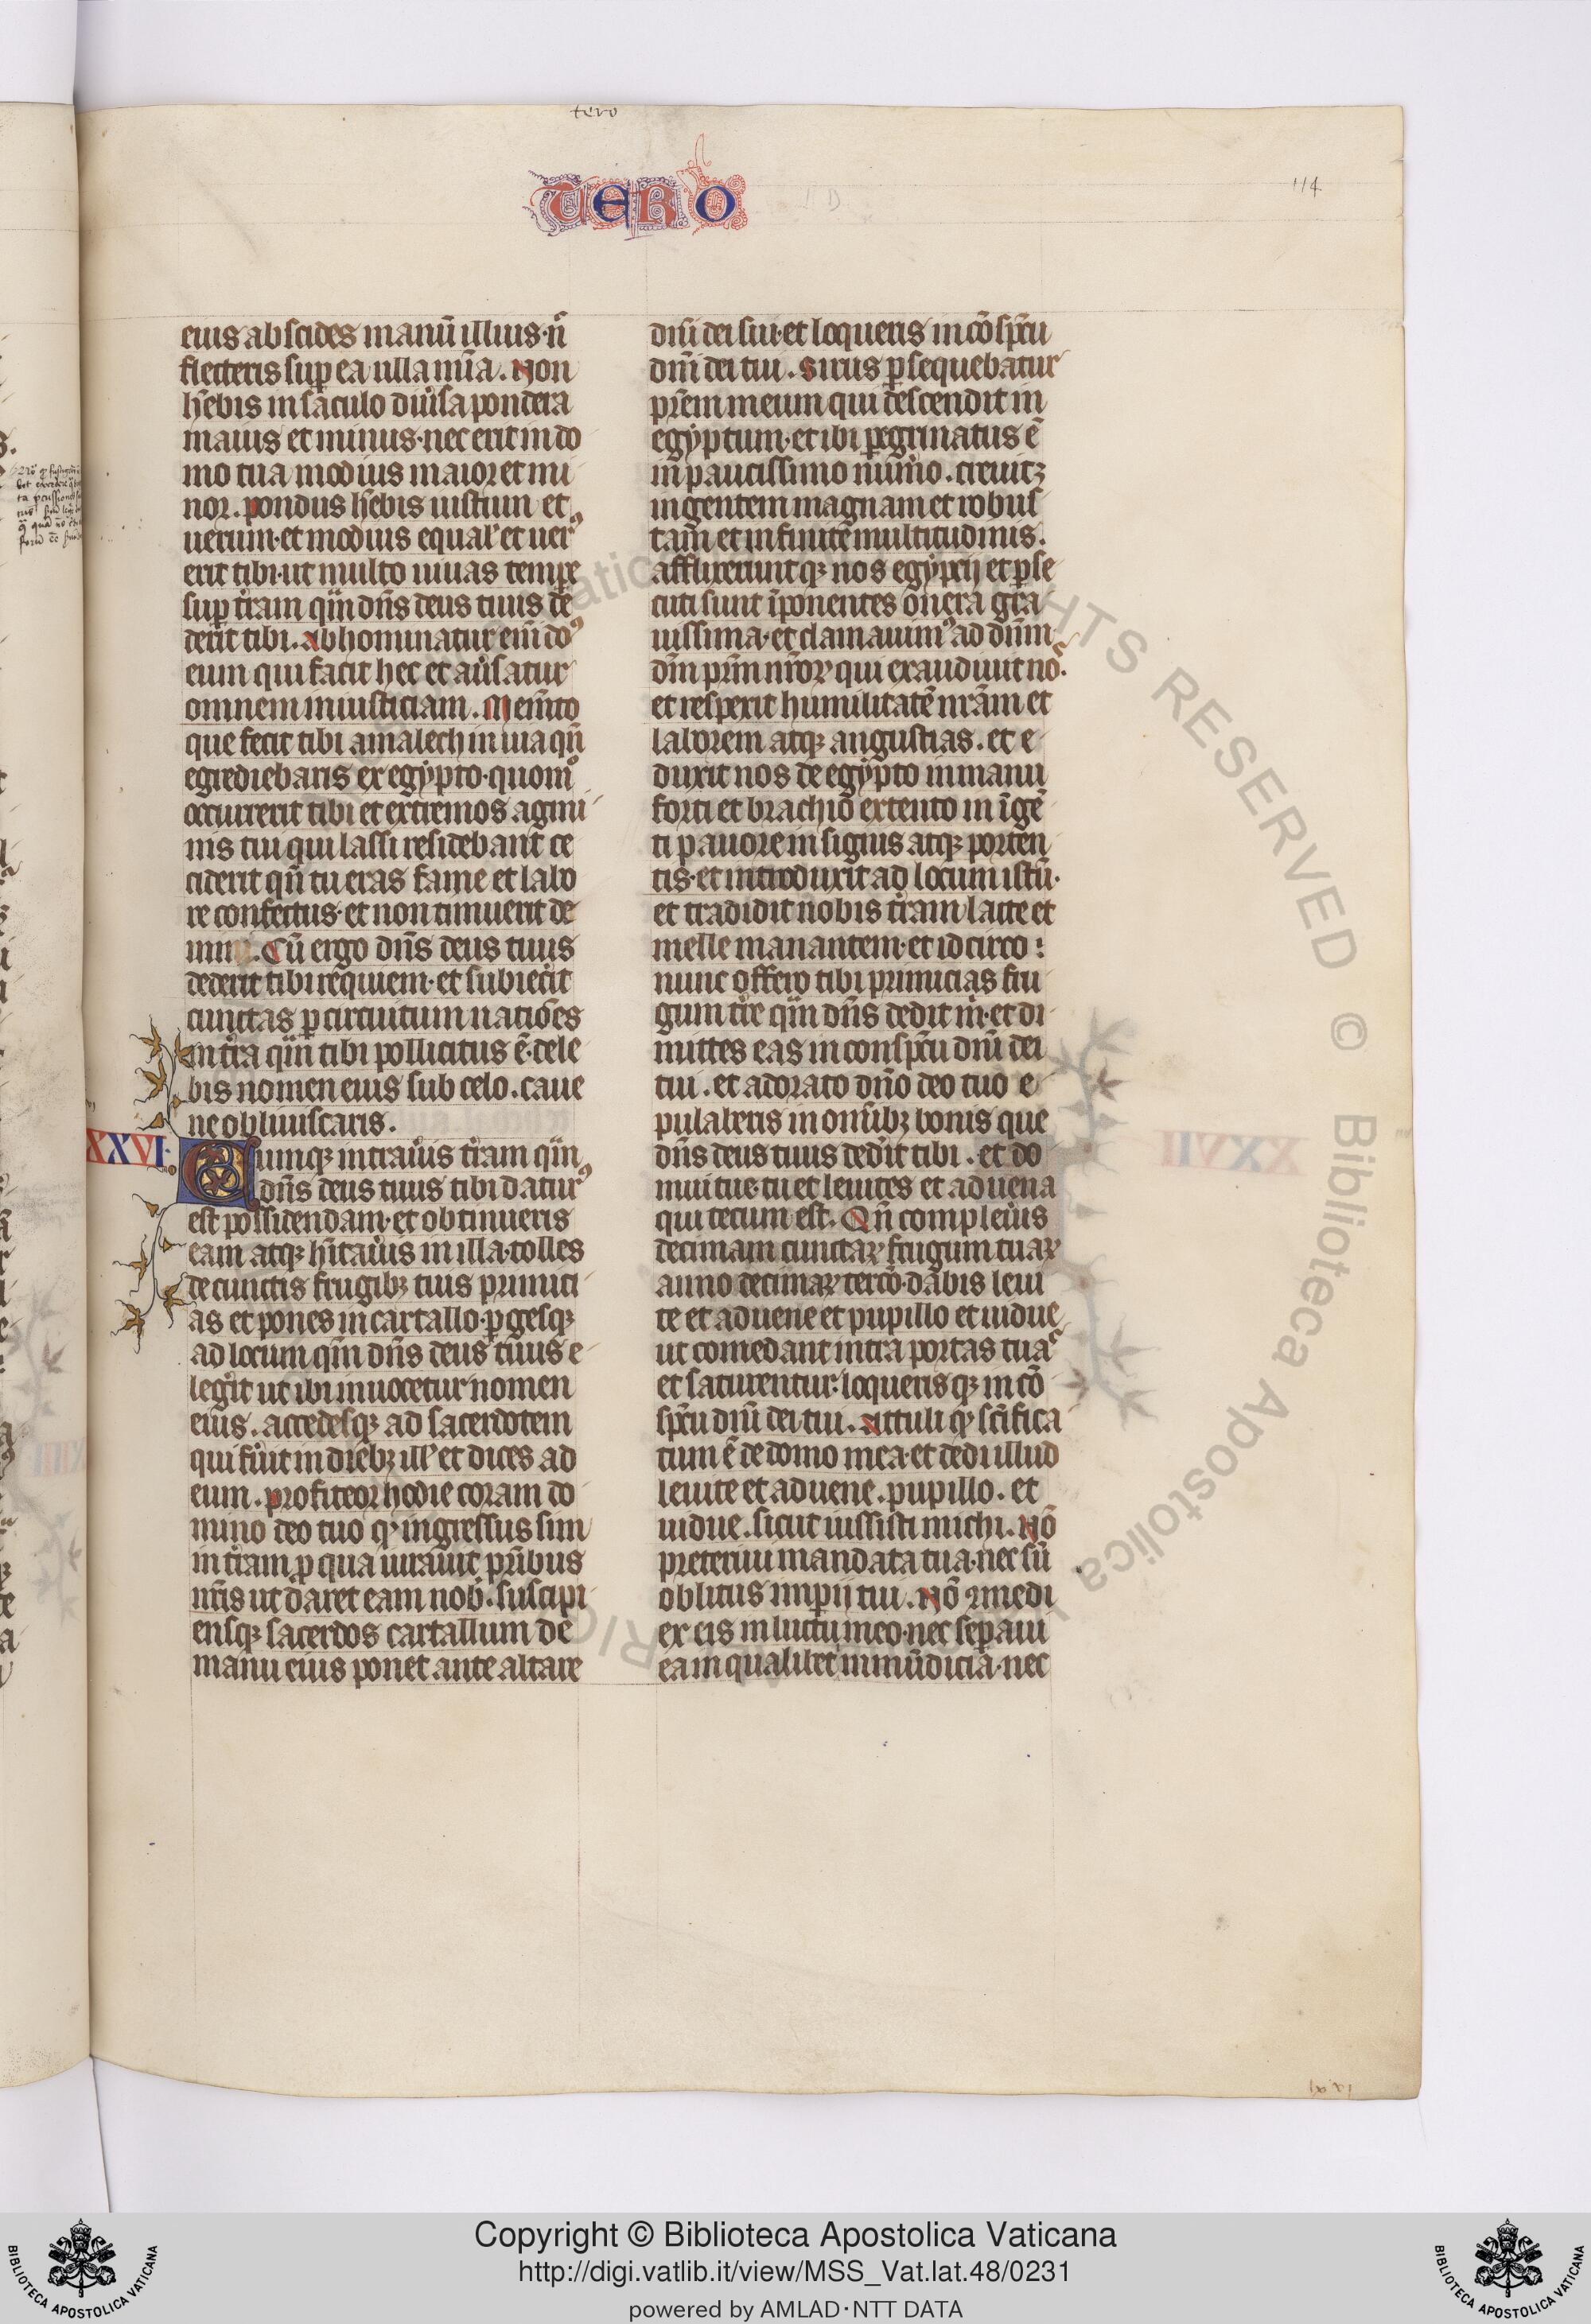 tero
TERO
114
eius abscides manū illius·n̄
flecteris suꝑ ea ulla mīa. Non
hēbis in sacculo diuͥsa pondera
maius et minus·nec erit in do
mo tua modius maior et mi
nor. pondus hēbis iustum et
uerum·et modius equalꝰ et uerꝰ
erit tibi·ut multo uiuas tempe
suꝑ tͥram qͣm dn̄s deus tuus de
derit tibi. Abhominatur eni᷑ doꝰ
eum qui facit hec et auͥsatur
omnem iniusticiam. Mem̄to
que fecit tibi amalech in uia qn̄
egrediebaris ex egypto·quomͦ
occurrerit tibi et extremos agmi
nis tui qui lassi residebant ce
ciderit qn̄ tu eras fame et labo
re confectus·et non timuerit de
um. Cū ergo dn̄s deus tuus
dederit tibi requiem·et subiecͥit
cunctas ꝑ circuitum natiōes
in tͥra qͣm tibi pollicitus ē·dele
bis nomen eius sub celo. caue
ne obliuiscaris.
XXVI
Cumqꝫ intrauͥis tͥram qͣm
dn̄s deus tuus tibi daturꝰ
est possidendam·et obtinueris
eam atqꝫ hītauͥis in illa·tolles
de cunctis frugibꝫ tuis primici
as et pones in cartallo·ꝑgesqꝫ
ad locum qͣm dn̄s deus tuus e
legͥit ut ibi inuocetur nomen
eius. accedesqꝫ ad sacerdotem
qui fuͥit in diebꝫ illꝭ et dices ad
eum. profiteor hodie coram do
mino deo tuo qꝫ ingressus sim
in tͥram ꝓ qua iurauit pr̄ibus
nr̄is ut daret eam nobͥ. suscipi
ensqꝫ sacerdos cartallum de
manu eius ponet ante altare
dn̄i dei sui·et loqueris in cōspc̄u
dn̄i dei tui. Sirus ꝑsequebatur
pr̄em meum qui descendit in
egyptum·et ibi ꝑegrinatus ē
in paucissimo num̄o. creuitꝫ
in gentem magnam et robus
tam̄ et infinite multitudinis.
afflixeruntqꝫ nos egyptij et ꝑse
cuti sunt īponentes onera gra
uissima·et clamauimꝰ ad dn̄m
dm̄ pr̄m nr̄oꝝ qui exaudiuit noˢ.
et respexit humilitatē nr̄am et
laborem atqꝫ angustias. et e
duxit nos de egypto in manu
forti et brachio extento in īgē
ti pauore in signis atqꝫ porten
tis·et introduxit ad locum istū·
et tradidit nobis tͥram lacte et
melle manantem·et idcirco:
nunc offero tibi primicias fru
gum tͥre qͣm dn̄s dedit mͥ·et di
mittes eas in conspc̄u dn̄i dei
tui. et adorato dn̄o deo tuo e
pulaberis in om̄ibꝫ bonis que
dn̄s deus tuus dedͥit tibi. et do
mui tue·tu et leuites et aduena
qui tecum est. Qn̄ compleuͥis
decimam cunctaꝝ frugum tuaꝝ
anno decimaꝝ tercō·dabis leui
te et aduene et pupillo et uidue
ut comedant intra portas tuaˢ
et saturentur·loquerisqꝫ in cō
spc̄u dn̄i dei tui. Attuli qꝫ sc̄ifica
tum ē de domo mea·et dedi illud
leuite et aduene. pupillo. et
uidue. sicut iussisti michi. Nō
preteriui mandata tua·nec sū
oblitus imꝑij tui. Nō ꝯmedi
ex eis in luctu meo·nec seꝑaui
ea in qualibet inmūdicia·nec
BIBLIOTECA APOSTOLICA VATICANA
Copyright © Biblioteca Apostolica Vaticana
http://digi.vatlib.it/view/MSS_Vat.lat.48/0231
powered by AMLAD·NTT DATA
BIBLIOTECA APOSTOLICA VATICANA